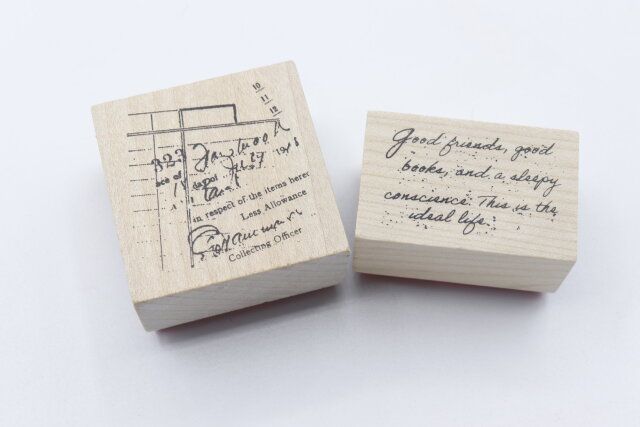 10
11
12
322
in respect of the items herer
Less Allowance
Collecting Officer
Good friends, good
books, and a sleepy
conscience: This is the
ideal life.